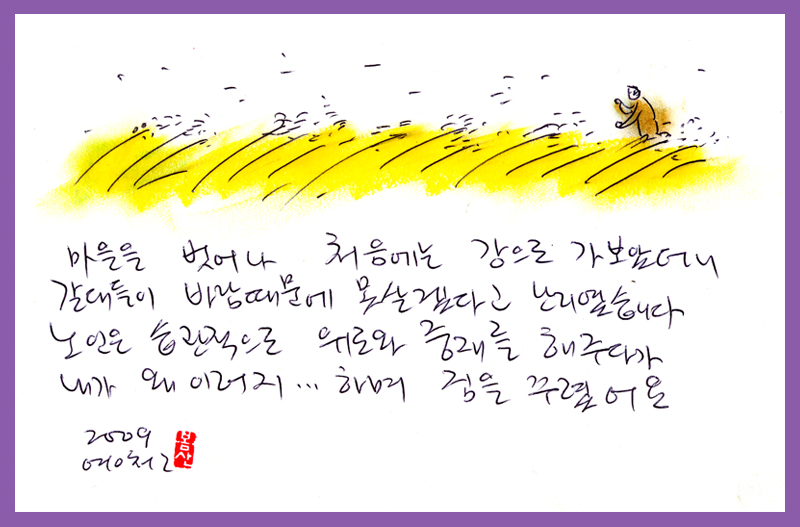 마을을 벗어나 처음에는 강으로 가보았더니
갈대들이 바람때문에 못살겠다고 난리였습니다
노인은 습관적으로 위로와 중재를 해주다가
내가 왜 이러지... 하며 짐을 꾸렸어요
2009
여이천
봄산